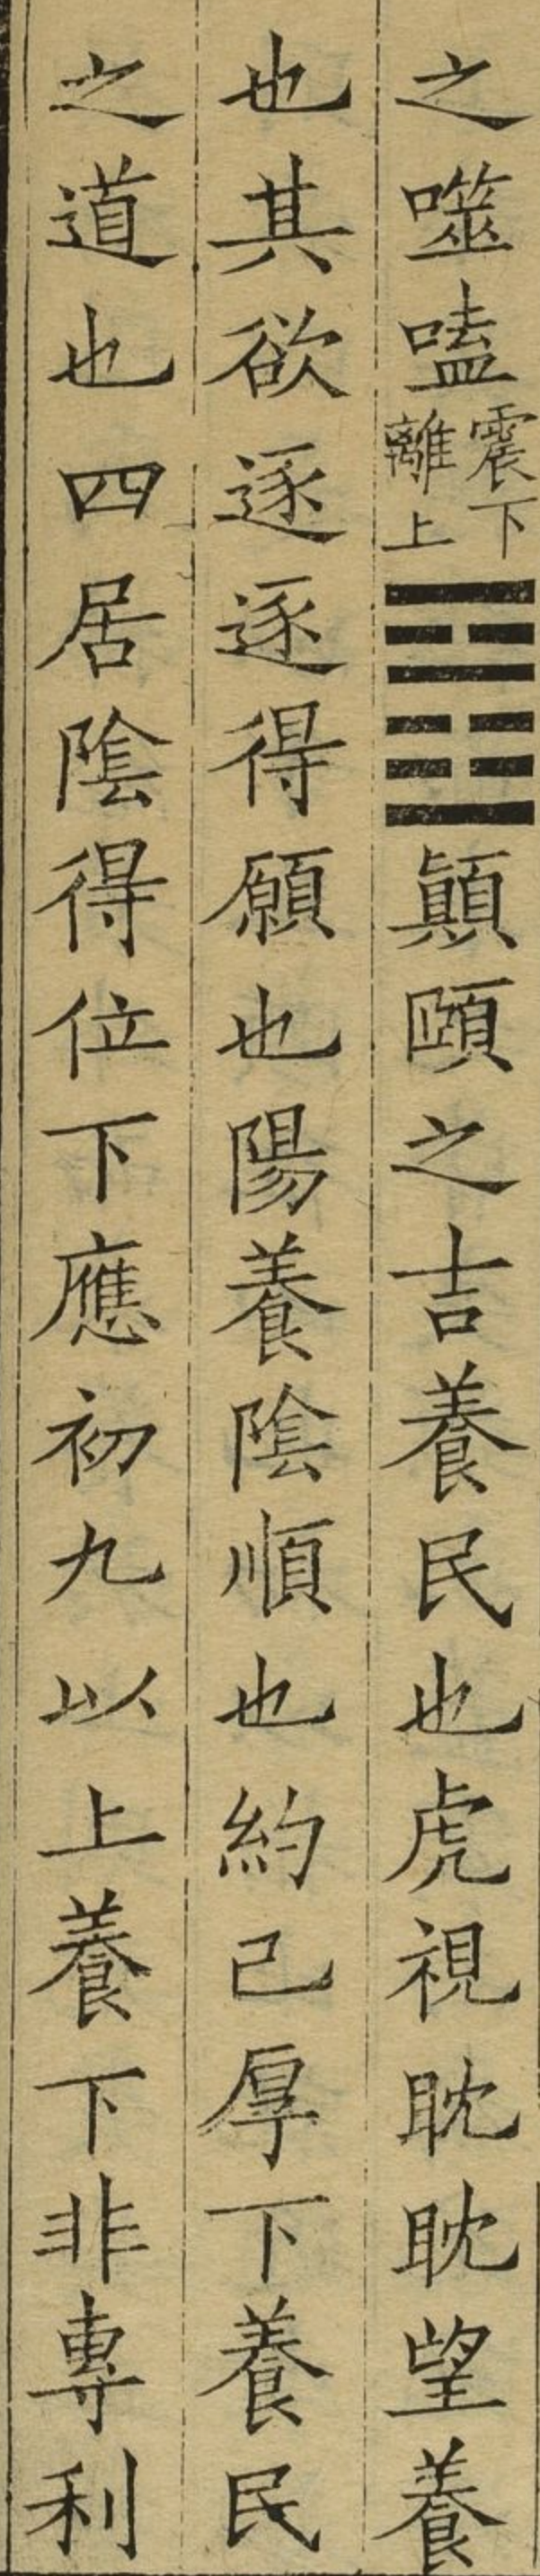 之噬嗑震下離上䷔顚頤之吉養民也虎視耽耽望養
也其欲逐逐得願也陽養陰順也約己厚下養民
之道也四居陰得位下應初九以上養下非專利